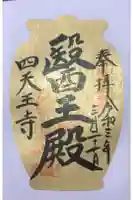 奉拝 令和三年
三月二十一日
醫王殿
四天王寺